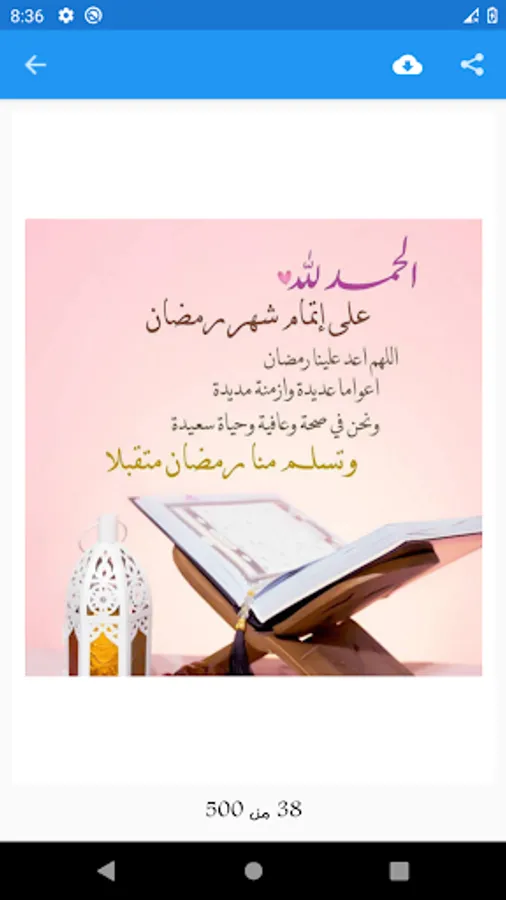 8:36
الحمد لله
على إتمام شهر رمضان
اللهم اعد علينا رمضان
اعواما عديدة وازمنة مديدة
ونحن في صحة وعافية وحياة سعيدة
وتسلم منا رمضان متقبلا
38 من 500